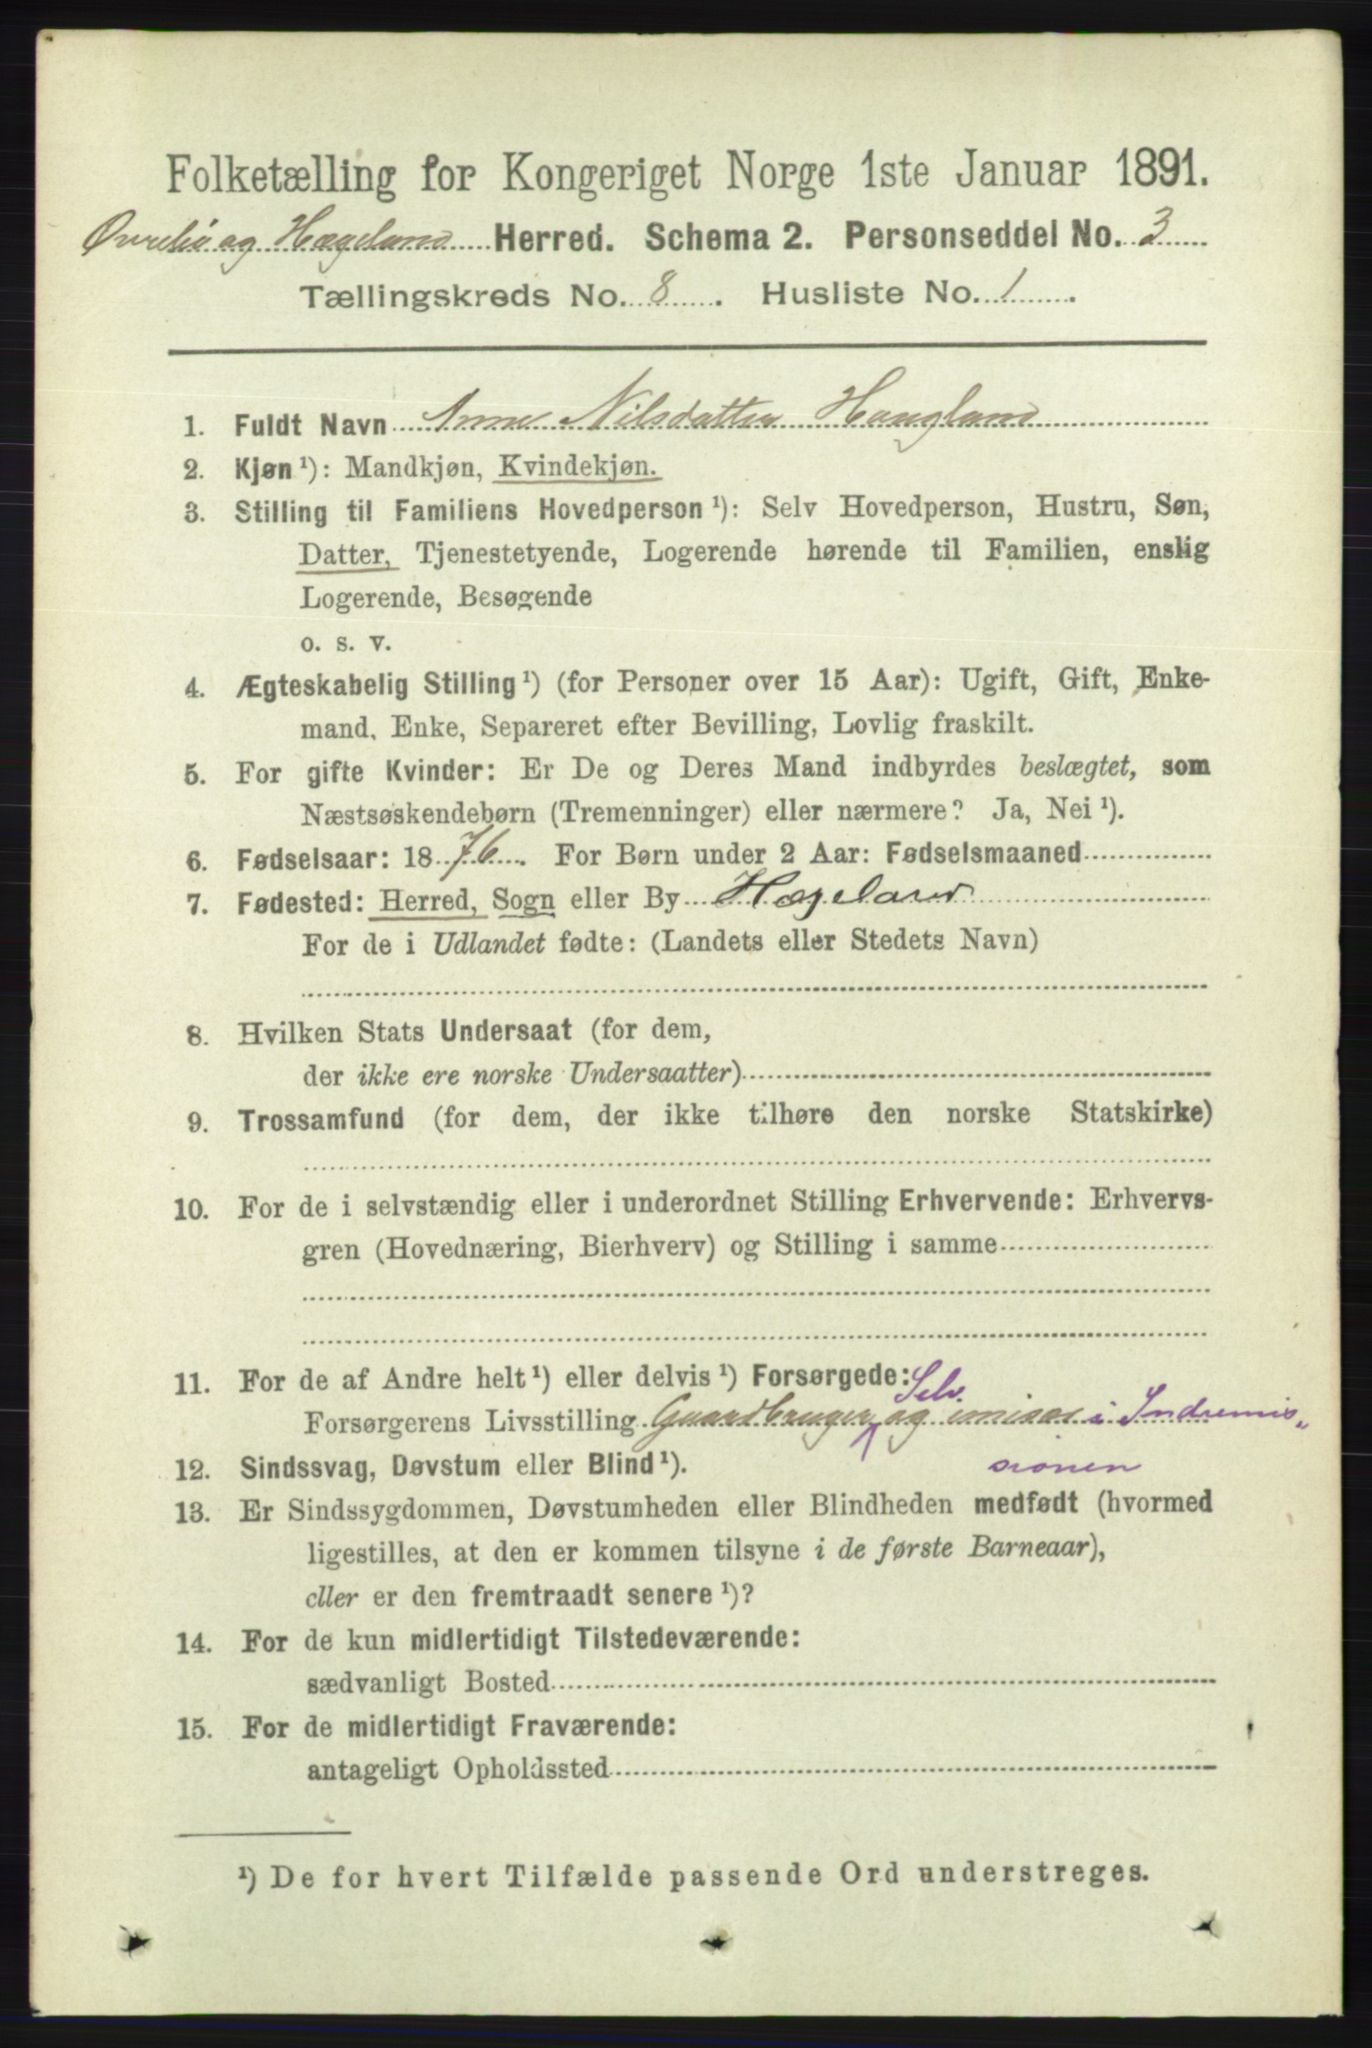 Folketælling for Kongeriget Norge 1ste Januar 1891.
Øvrebø og Hægeland Herred. Schema 2. Personseddel No. 3
Tællingskreds No. 8. Husliste No. 1.
1. Fuldt Navn Anne Nilsdatter Haugland
2. Kjøn ¹): Mandkjøn, Kvindekjøn.
3. Stilling til Familiens Hovedperson ¹): Selv Hovedperson, Hustru, Søn,
Datter, Tjenestetyende, Logerende hørende til Familien, enslig
Logerende, Besøgende
o. s. v.
4. Ægteskabelig Stilling ¹) (for Personer over 15 Aar): Ugift, Gift, Enke-
mand, Enke, Separeret efter Bevilling, Lovlig fraskilt.
5. For gifte Kvinder: Er De og Deres Mand indbyrdes beslægtet, som
Næstsøskendebørn (Tremenninger) eller nærmere? Ja, Nei ¹).
6. Fødselsaar: 1876. For Børn under 2 Aar: Fødselsmaaned
7. Fødested: Herred, Sogn eller By Hægeland
For de i Udlandet fødte: (Landets eller Stedets Navn)
8. Hvilken Stats Undersaat (for dem,
der ikke ere norske Undersaatter)
9. Trossamfund (for dem, der ikke tilhøre den norske Statskirke)
10. For de i selvstændig eller i underordnet Stilling Erhvervende: Erhvervs-
gren (Hovednæring, Bierhverv) og Stilling i samme
11. For de af Andre helt ¹) eller delvis ¹) Forsørgede: Selv.
Forsørgerens Livsstilling Gaardbruger og i Indremis-
sionen
12. Sindssvag, Døvstum eller Blind ¹).
13. Er Sindssygdommen, Døvstumheden eller Blindheden medfødt (hvormed
ligestilles, at den er kommen tilsyne i de første Barneaar),
eller er den fremtraadt senere ¹)?
14. For de kun midlertidigt Tilstedeværende:
sædvanligt Bosted
15. For de midlertidigt Fraværende:
antageligt Opholdssted
¹) De for hvert Tilfælde passende Ord understreges.